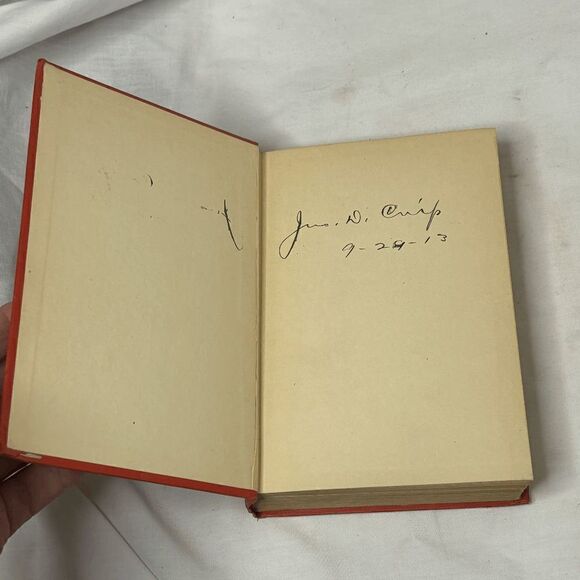 Jno. D. Crisp
9-28-13